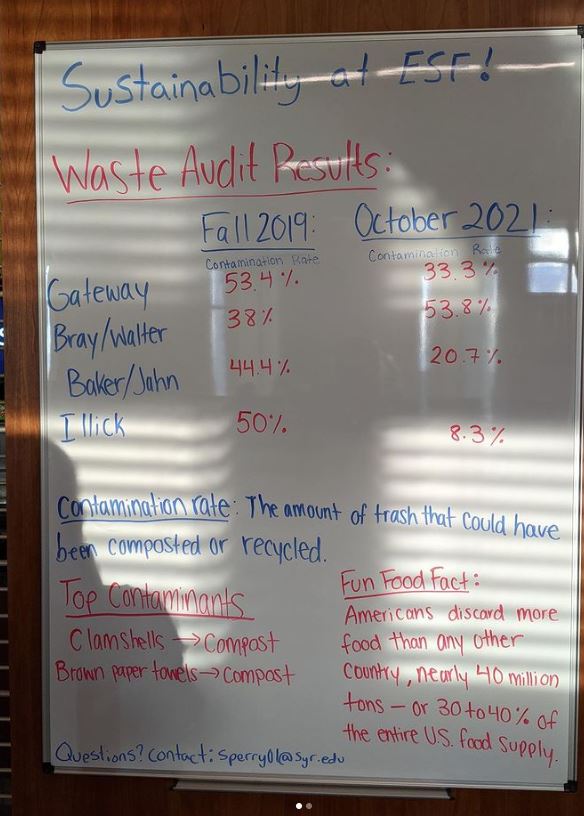 Sustainability at ESF!
Waste Audit Results:
Fall 2019: October 2021:
Contamination Rate Contamination Rate
Gateway 53.4% 33.3%
Bray/Walter 38% 53.8%
Baker/Jahn 44.4% 20.7%
Illick 50% 8.3%
Contamination rate: The amount of trash that could have
been composted or recycled.
Top Contaminants
Clamshells → Compost
Brown paper towels → Compost
Fun Food Fact:
Americans discard more
food than any other
country, nearly 40 million
tons — or 30 to 40% of
the entire U.S. food supply.
Questions? Contact: Sperry01@syr.edu